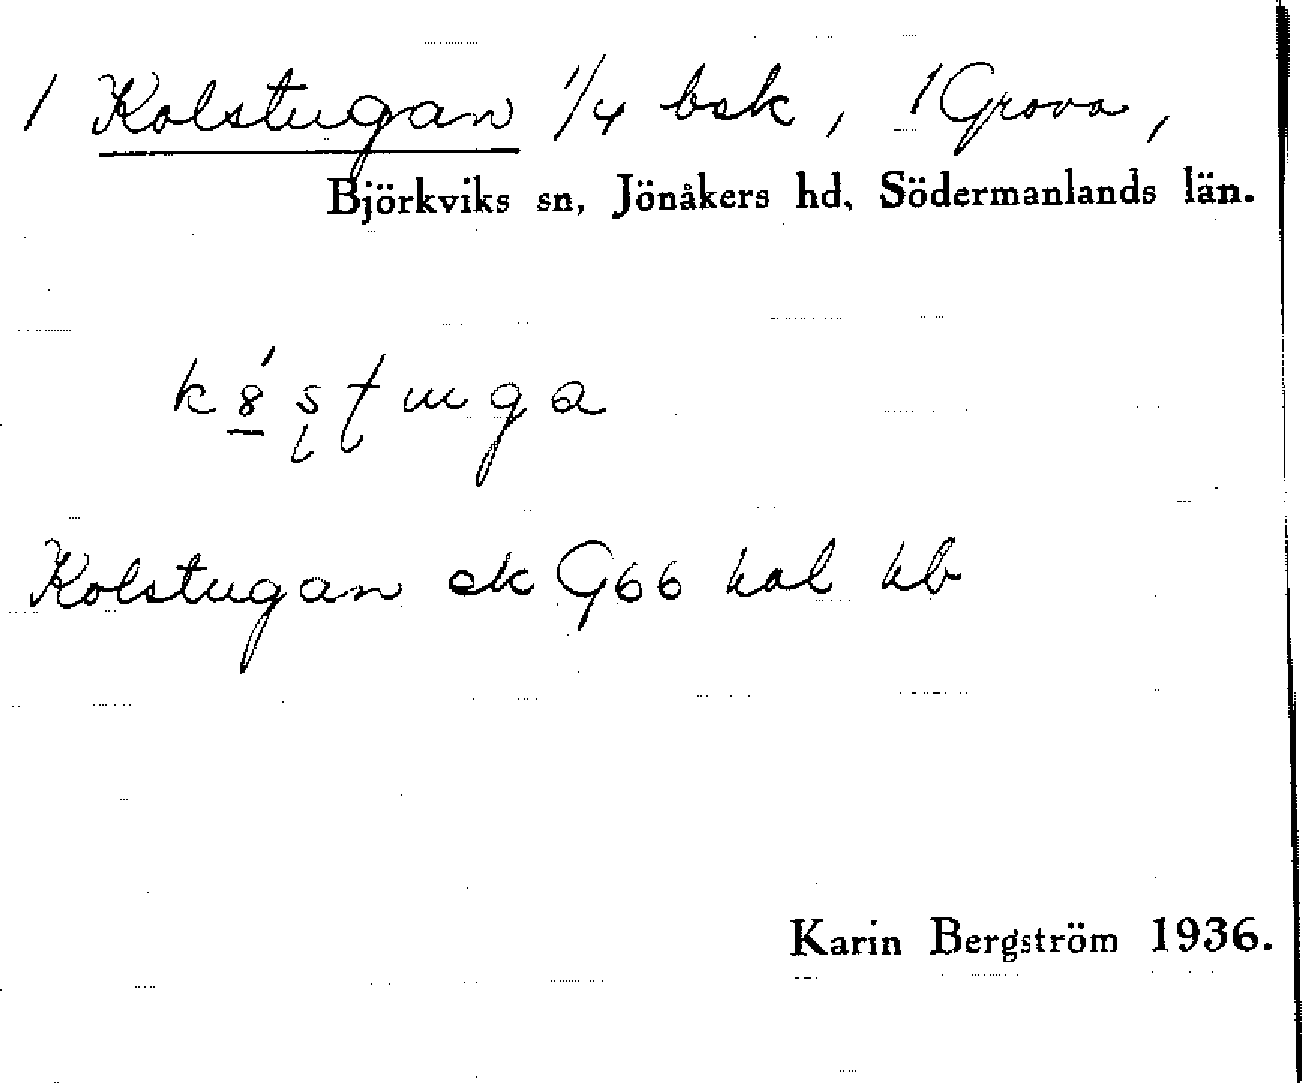 / Kolstugan 1/4 bsk, /Grova,
Björkviks sn, Jönåkers hd, Södermanlands län.
Kolstugan ek G66 hal hb
Karin Bergström 1936.